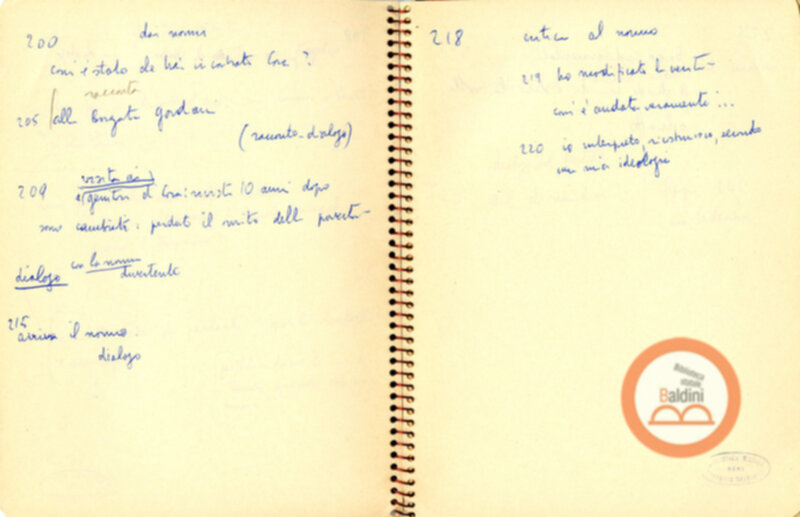 200 dai nonni
com'è stato che hai incontrato Cora?
racconta
205 alla Borgata Gordiani
(racconto-dialogo)
209 visita ai
genitori di Cora: rivisti 10 anni dopo
sono cambiati: perduto il mito della povertà
dialogo con la nonna
divertente
215
arriva il nonno.
dialogo
218 critica al nonno
219 ho modificato la verità
com'è andata veramente...
220 io interpreto, ricostruisco, secondo
una mia ideologia
Biblioteca
statale
Baldini